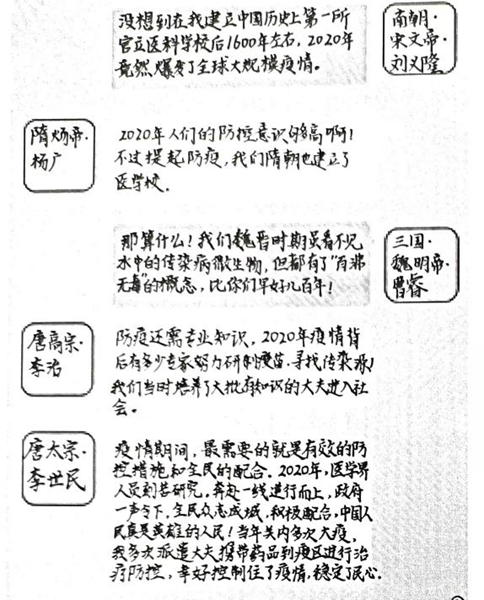 没想到在我建立中国历史上第一所
官立医科学校后1600年左右,2020年
竟然爆发了全球大规模疫情。
南朝·
宋文帝·
刘义隆
隋炀帝·
杨广
2020年人们的防控意识够高啊!
不过提起防疫,我们隋朝也建立了
医学校。
那算什么!我们魏晋时期虽看不见
水中的传染病微生物,但都有了“百沸
无毒”的概念,比你们早好几百年!
三国·
魏明帝·
曹睿
唐高宗·
李治
防疫还需专业知识,2020年疫情背
后有多少专家努力研制疫苗、寻找传染源!
我们当时培养了大批有知识的大夫进入社
会。
唐太宗·
李世民
疫情期间,最需要的就是有效的防
控措施和全民的配合。2020年,医学界
人员刻苦研究,奔赴一线逆行而上,政府
一声令下,全民众志成城,积极配合,中国人
民真是英雄的人民!当年关内多次大疫,
我多次派遣大夫携带药品到疫区进行治
疗防控,幸好控制住了疫情,稳定了民心。